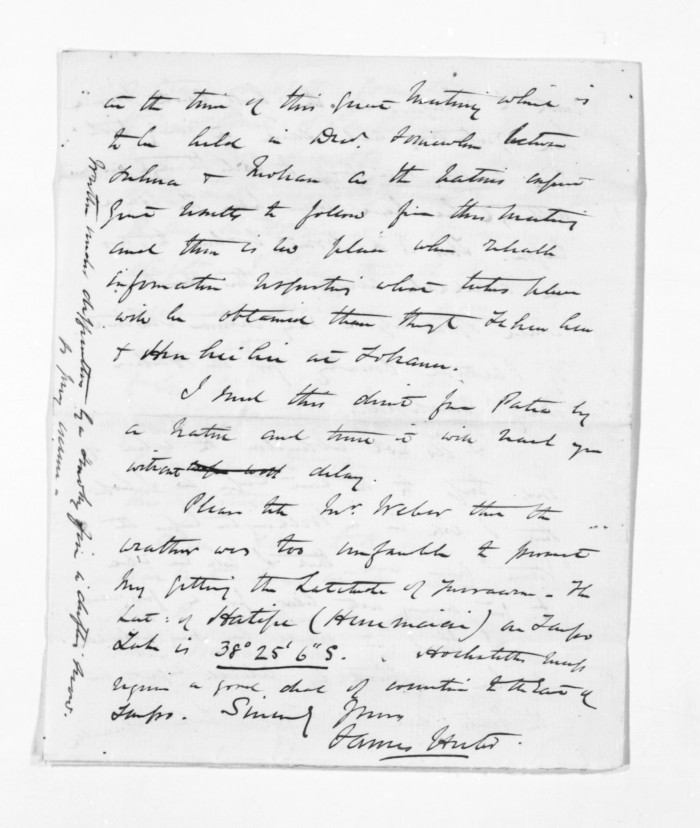 at the time of this great Meeting which is
to be held in Decr. somewhere between
Tuhua & Mokau as the natives expect
great results to follow from this meeting
and there is no place where reliable
information respecting what takes place
will be obtained than through
& at Tokanu.
I send this direct from Patea by
a native and trust it will reach you
without delay.
Please tell Mr. Weber that the
weather was too unfavorable to permit
my getting the Latitude of The
Lat: of Hatepe (Hinemaiai) on Taupo
Lake is 38° 25' 6" S. Hochstetters map
require a good deal of correction to the East of
Taupo. Sincerely Yours
James
Written under difficulties by a smoky fire &
to my